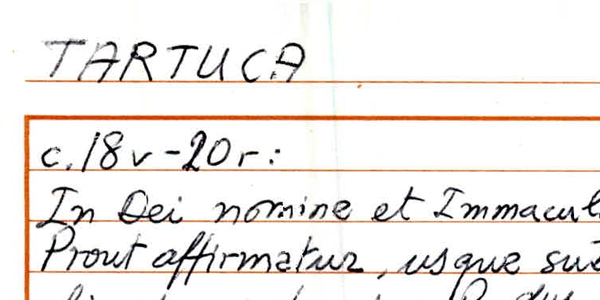 TARTUCA
c. 18v-20r:
In Dei nomine et
Prout affirmatur, usque